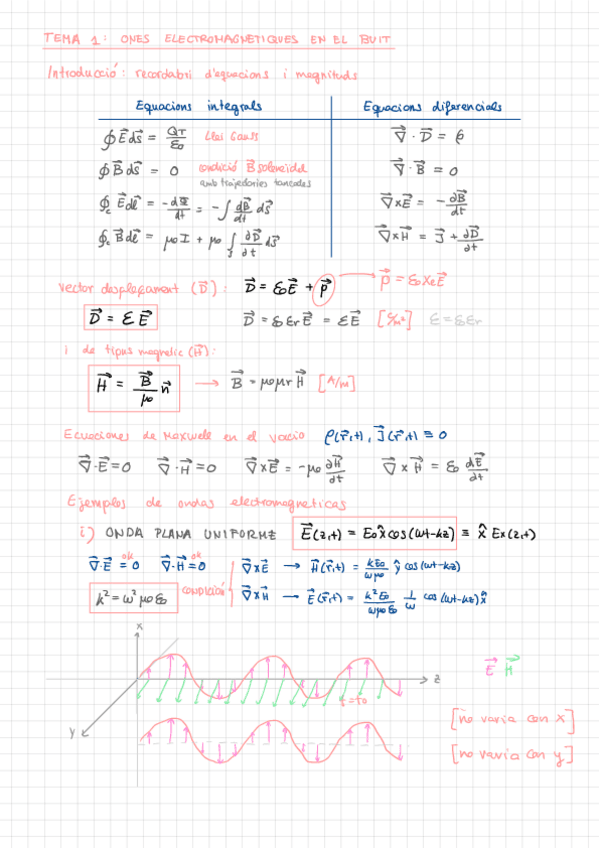 TEMA 1: ONES ELECTROMAGNETIQUES EN EL BUIT
Introducció: recordatori d'equacions i magnituds
Equacions integrals Equacions diferencials
∮E⃗ds⃗ = QT/ε₀ Llei Gauss ∇⃗ · D⃗ = ρ
∮B⃗ds⃗ = 0 condició B⃗ solenoidal ∇⃗ · B⃗ = 0
amb trajectories tancades
∮c E⃗dl⃗ = -dΦ/dt = -∫ dB⃗/dt ds⃗ ∇⃗xE⃗ = -∂B⃗/dt
∮c B⃗dl⃗ = μ₀I + μ₀∫s ∂D⃗/∂t ds⃗ ∇⃗xH⃗ = J⃗ + ∂D⃗/∂t
Vector desplaçament (D⃗): D⃗ = ε₀E⃗ + p⃗ → p⃗ = ε₀XeE⃗
D⃗ = εE⃗ D⃗ = ε₀εrE⃗ = εE⃗ [C/m²] ε=ε₀εr
i de tipus magnetic (H⃗):
H⃗ = B⃗/μ₀ n⃗ → B⃗ = μ₀μrH⃗ [A/m]
Ecuaciones de Maxwell en el vacio ρ(r⃗,t), J⃗(r⃗,t) ≡ 0
∇⃗·E⃗=0 ∇⃗·H⃗=0 ∇⃗xE⃗ = -μ₀ ∂H⃗/∂t ∇⃗xH⃗ = ε₀ dE⃗/∂t
Ejemplos de ondas electromagneticas
i) ONDA PLANA UNIFORME E⃗(z,t) = E₀x̂cos(ωt-kz) ≡ x̂ Ex(z,t)
∇⃗·E⃗ = 0 ok ∇⃗·H⃗=0 ok ∇⃗xE⃗ → H⃗(r⃗,t) = kE₀/ωμ₀ ŷ cos(ωt-kz)
k² = ω²μ₀ε₀ condición ∇⃗xH⃗ → E⃗(r⃗,t) = k²E₀/ωμ₀ε₀ 1/ω cos(ωt-kz)x̂
x
E⃗ H⃗
z
t=t₀
y
[no varia con x]
[no varia con y]